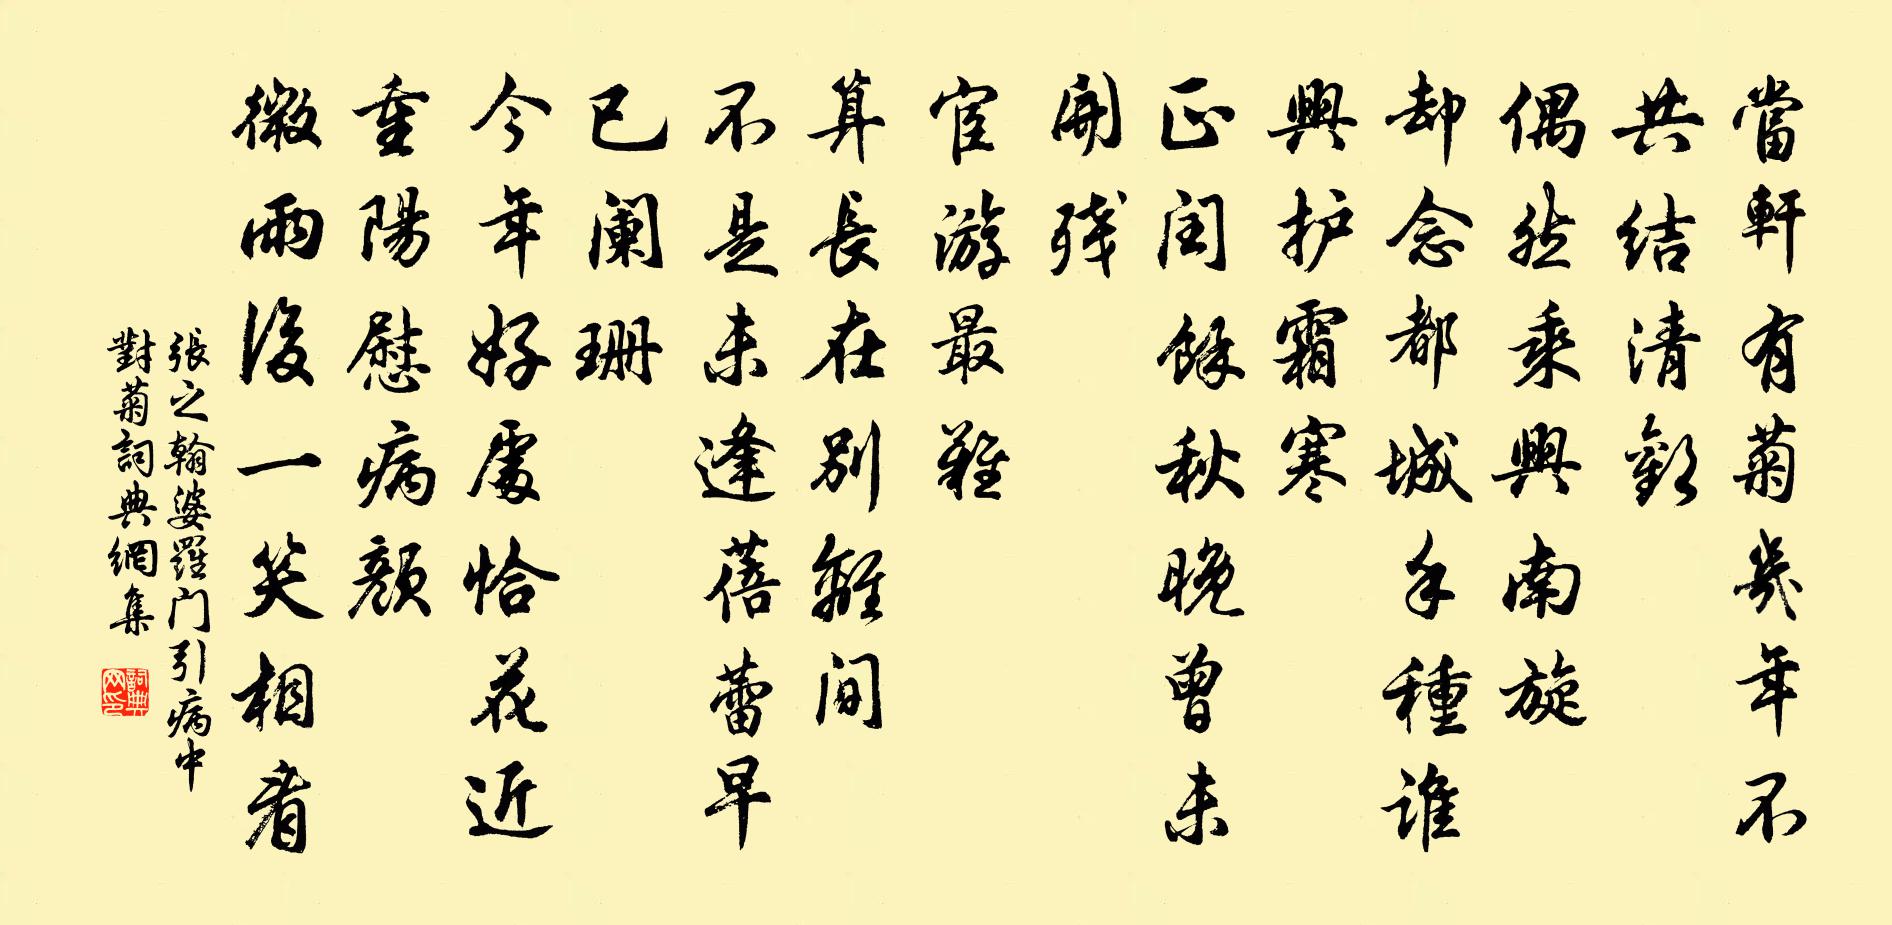 當軒有菊幾年不
共結清歡
偶然乘興南旋
却念都城手種誰
興护霜寒
正闰餘秋晚曾未
開残
宦游最難
算長在别離间
不是未逢蓓蕾早
已阑珊
今年好處恰花近
重陽慰病顔
微雨後一笑相看
張之翰婆羅门引病中
對菊詞典網集
詞典
网印